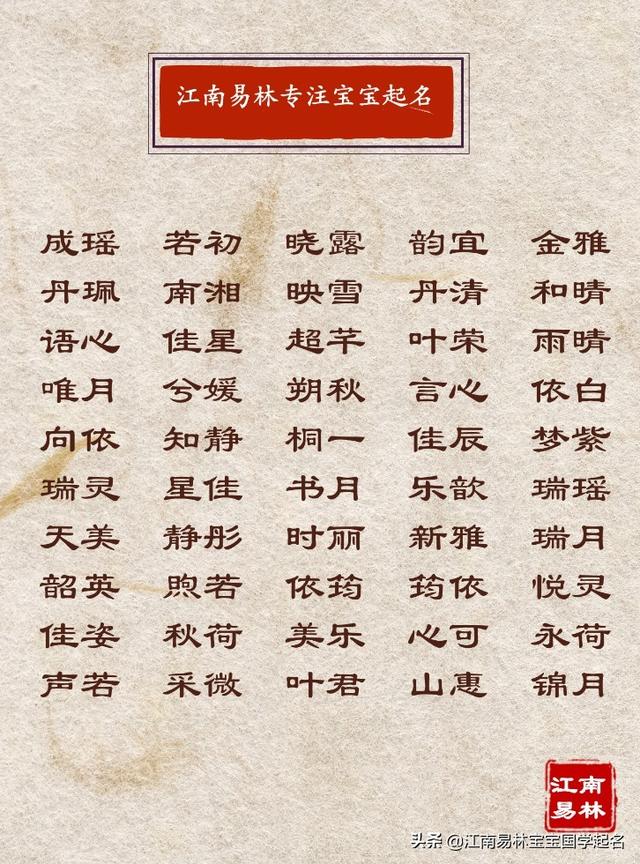 江南易林专注宝宝起名
成瑶 若初 晓露 韵宜 金雅
丹珮 南湘 映雪 丹清 和晴
语心 佳星 超芊 叶荣 雨晴
唯月 兮媛 朔秋 言心 依白
向依 知静 桐一 佳辰 梦紫
瑞灵 星佳 书月 乐歆 瑞瑶
天美 静彤 时丽 新雅 瑞月
韶英 煦若 依筠 筠依 悦灵
佳姿 秋荷 美乐 心可 永荷
声若 采微 叶君 山惠 锦月
江南
易林
头条 @江南易林宝宝国学起名